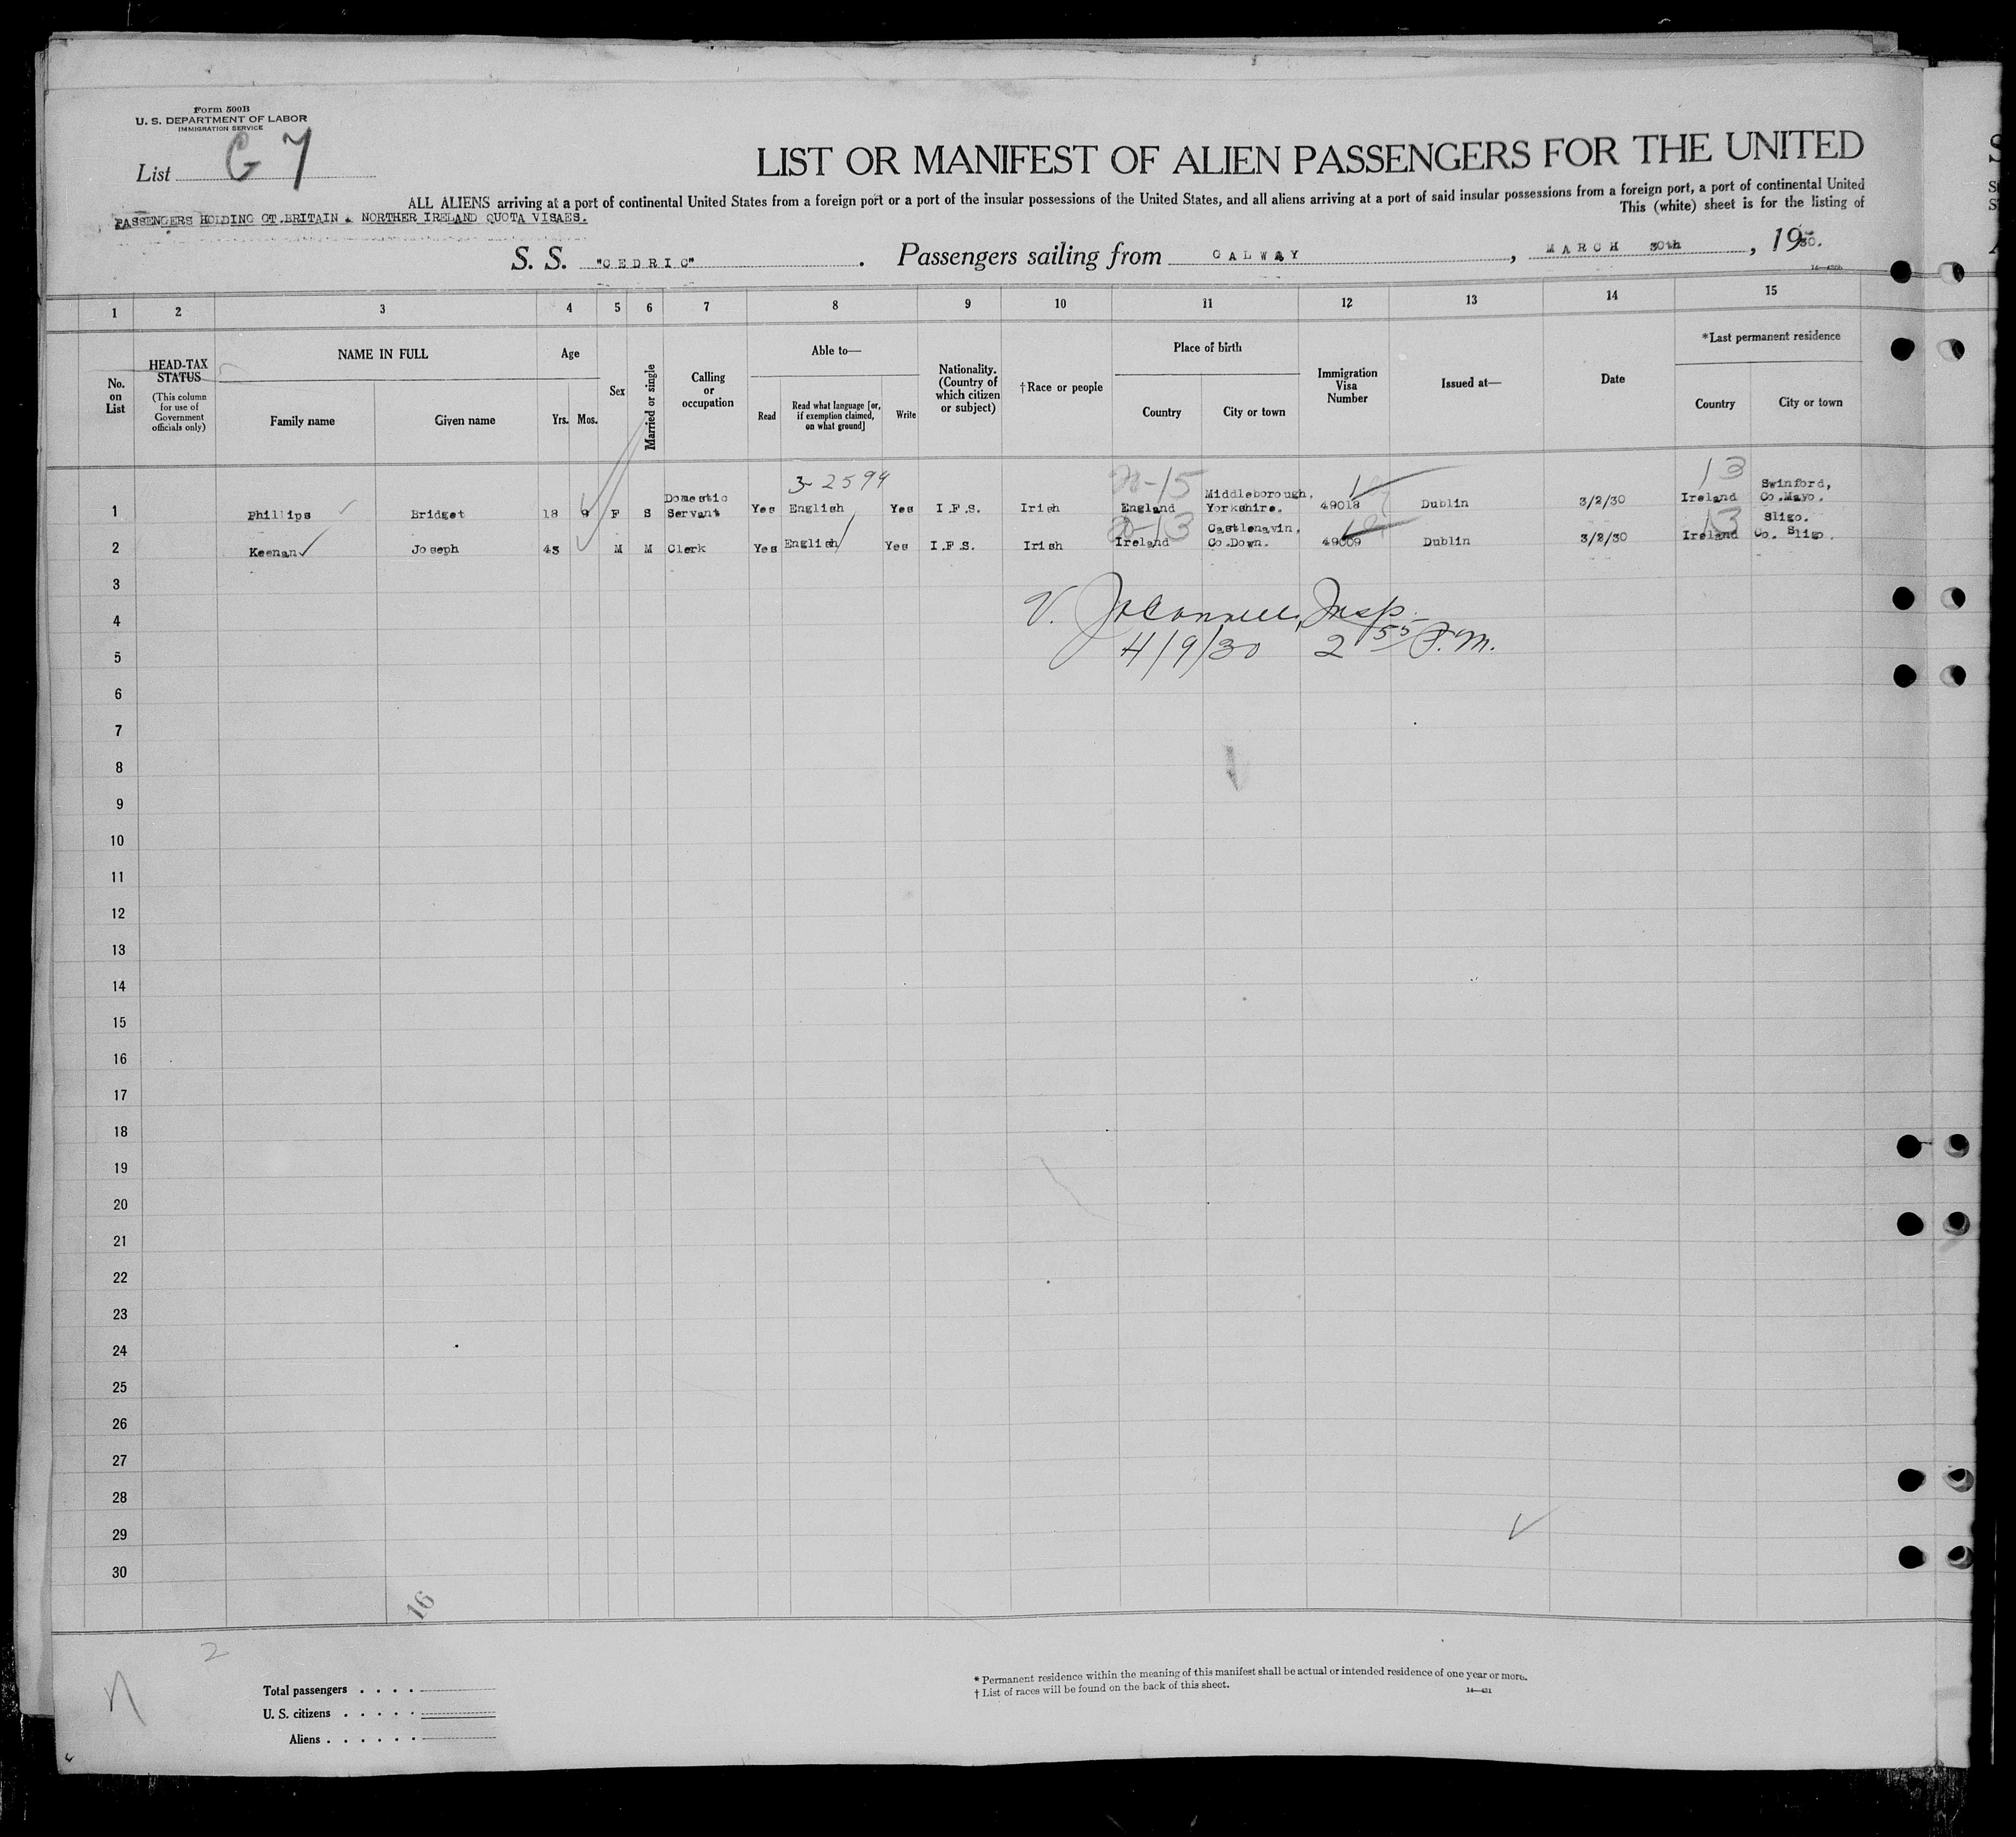 Form 500B
U. S. DEPARTMENT OF LABOR
IMMIGRATION SERVICE
List G 7
LIST OR MANIFEST OF ALIEN PASSENGERS FOR THE UNITED
ALL ALIENS arriving at a port of continental United States from a foreign port or a port of the insular possessions of the United States, and all aliens arriving at a port of said insular possessions from a foreign port, a port of continental United
This (white) sheet is for the listing of
PASSENGERS HOLDING GT.BRITAIN & NORTHER IRELAND QUOTA VISAES.
S. S. "CEDRIC". Passengers sailing from GALWAY, MARCH 30th, 1930.
1 2 3 4 5 6 7 8 9 10 11 12 13 14 15
No. on List
HEAD-TAX STATUS
(This column for use of Government officials only)
NAME IN FULL
Family name
Given name
Age
Yrs. Mos.
Sex
Married or single
Calling or occupation
Able to—
Read
Read what language [or, if exemption claimed, on what ground]
Write
Nationality. (Country of which citizen or subject)
†Race or people
Place of birth
Country
City or town
Immigration Visa Number
Issued at—
Date
*Last permanent residence
Country
City or town
3-2599
-15
13
1 Phillips Bridget 18 9 F S Domestic Servant Yes English Yes I.F.S. Irish England Middleborough, Yorkshire. 49018 Dublin 3/2/30 Ireland Swinford, Co.Mayo.
-13
13
2 Keenan Joseph 43 M M Clerk Yes English Yes I.F.S. Irish Ireland Castlenavin, Co.Down. 49009 Dublin 3/2/30 Ireland Sligo. Co. Sligo.
3
4
Insp.
5
4/9/30 2 55 P.M.
6
7
8
9
10
11
12
13
14
15
16
17
18
19
20
21
22
23
24
25
26
27
28
29
30
16
2
Total passengers
U. S. citizens
Aliens
* Permanent residence within the meaning of this manifest shall be actual or intended residence of one year or more.
† List of races will be found on the back of this sheet.